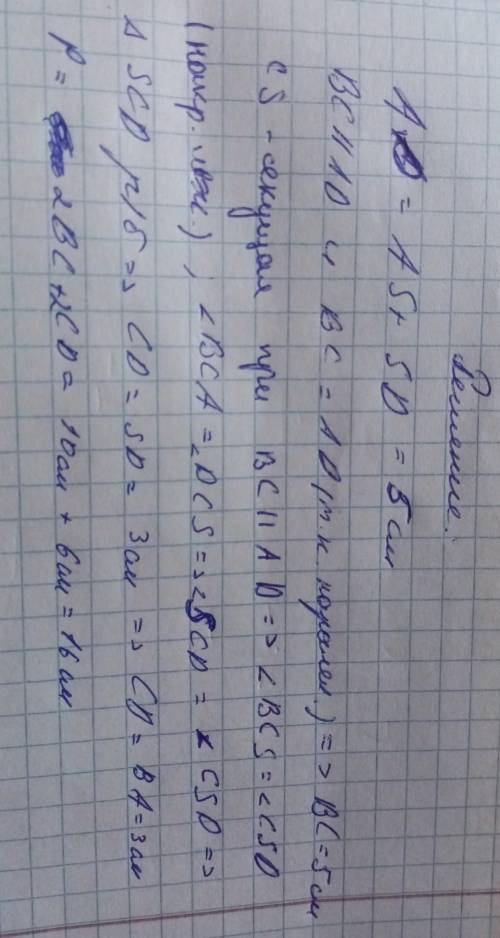 Решение:
AD = AS + SD = 5 см
BC || AD и BC = AD (т.к. паралел.) => BC = 5 см
CS - секущая при BC || AD => ∠BCS = ∠CSD
(накр. леж.), ∠BCA = ∠DCS => ∠SCD = ∠CSD =>
Δ SCD р/б => CD = SD = 3 см => CD = BA = 3 см
P = 2BC + 2CD = 10 см + 6 см = 16 см